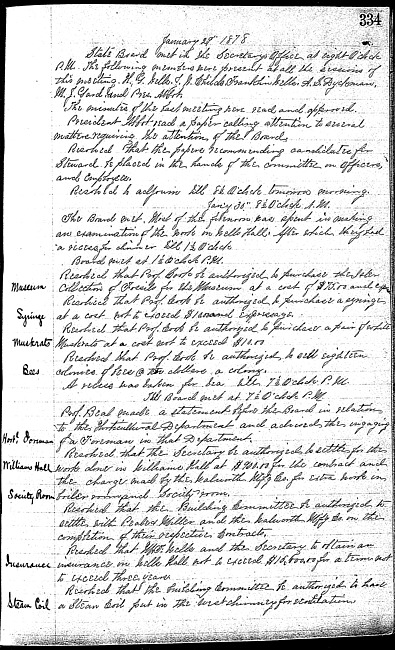 334
January 29" 1878
State Board met in the Secretarys Office at eight O'clock
P.M. The following members were present at all the sessions of
this meeting. H. G. Wells. J. J. Childs Franklin Wells. A. S. Dyckman,
M. J. Gard and Pres Abbot.
The minutes of the last meeting were read and approved.
President Abbot read a paper calling attention to several
matters requiring the attention of the Board.
Resolved That the papers recommending candidates for
Steward be placed in the hands of the committee on Officers,
and Employees.
Resolved to adjourn till 8½ O'clock tomorrow morning.
Jany 30" 8½ O'clock A.M.
The Board met. Most of the forenoon was spent in making
an examination of the work in Wells Hall. After which they had
a recess for dinner till 1½ O'clock.
Board met at 1½ O'clock P.M.
Resolved that Prof Cook be authorized to purchase the
Museum Collection of Fossils for the Museum at a cost of $75.00 and
Resolved that Prof. Cook be authorized to purchase a syringe
Syringe at a cost not to exceed and expressage.
Resolved that Prof Cook be authorized to purchase a pair of white
Muskrats Muskrats at a cost not to exceed $10.00
Resolved that Prof. Cook be authorized, to sell eighteen
Bees colonies of bees @ ten dollars a colony.
A recess was taken for tea till 7½ O'clock P.M.
The Board met at 7½ O'clock P.M.
Prof. Beal made a statement before the Board in relation
to the Horticultural Department and advised the engaging
Hort. Foreman of a Foreman in that Department.
Resolved that the Secretary be authorized to settle for the
Williams Hall work done in Williams Hall at for the contract and
the charge made by the Walworth Mfg Co. for extra work in
Society Room boiler room and Society room.
Resolved that the Building Committee be authorized to
settle with Miller and the Walworth Mfg Co. on the
completion of their respective Contracts.
Resolved that Wells and the Secretary to obtain an
Insurance insurance on Wells Hall not to exceed for a term not
to exceed three years.
Resolved that the Building Committee be authorized to have
Steam Coil a Steam Coil put in the west chimney for ventilation